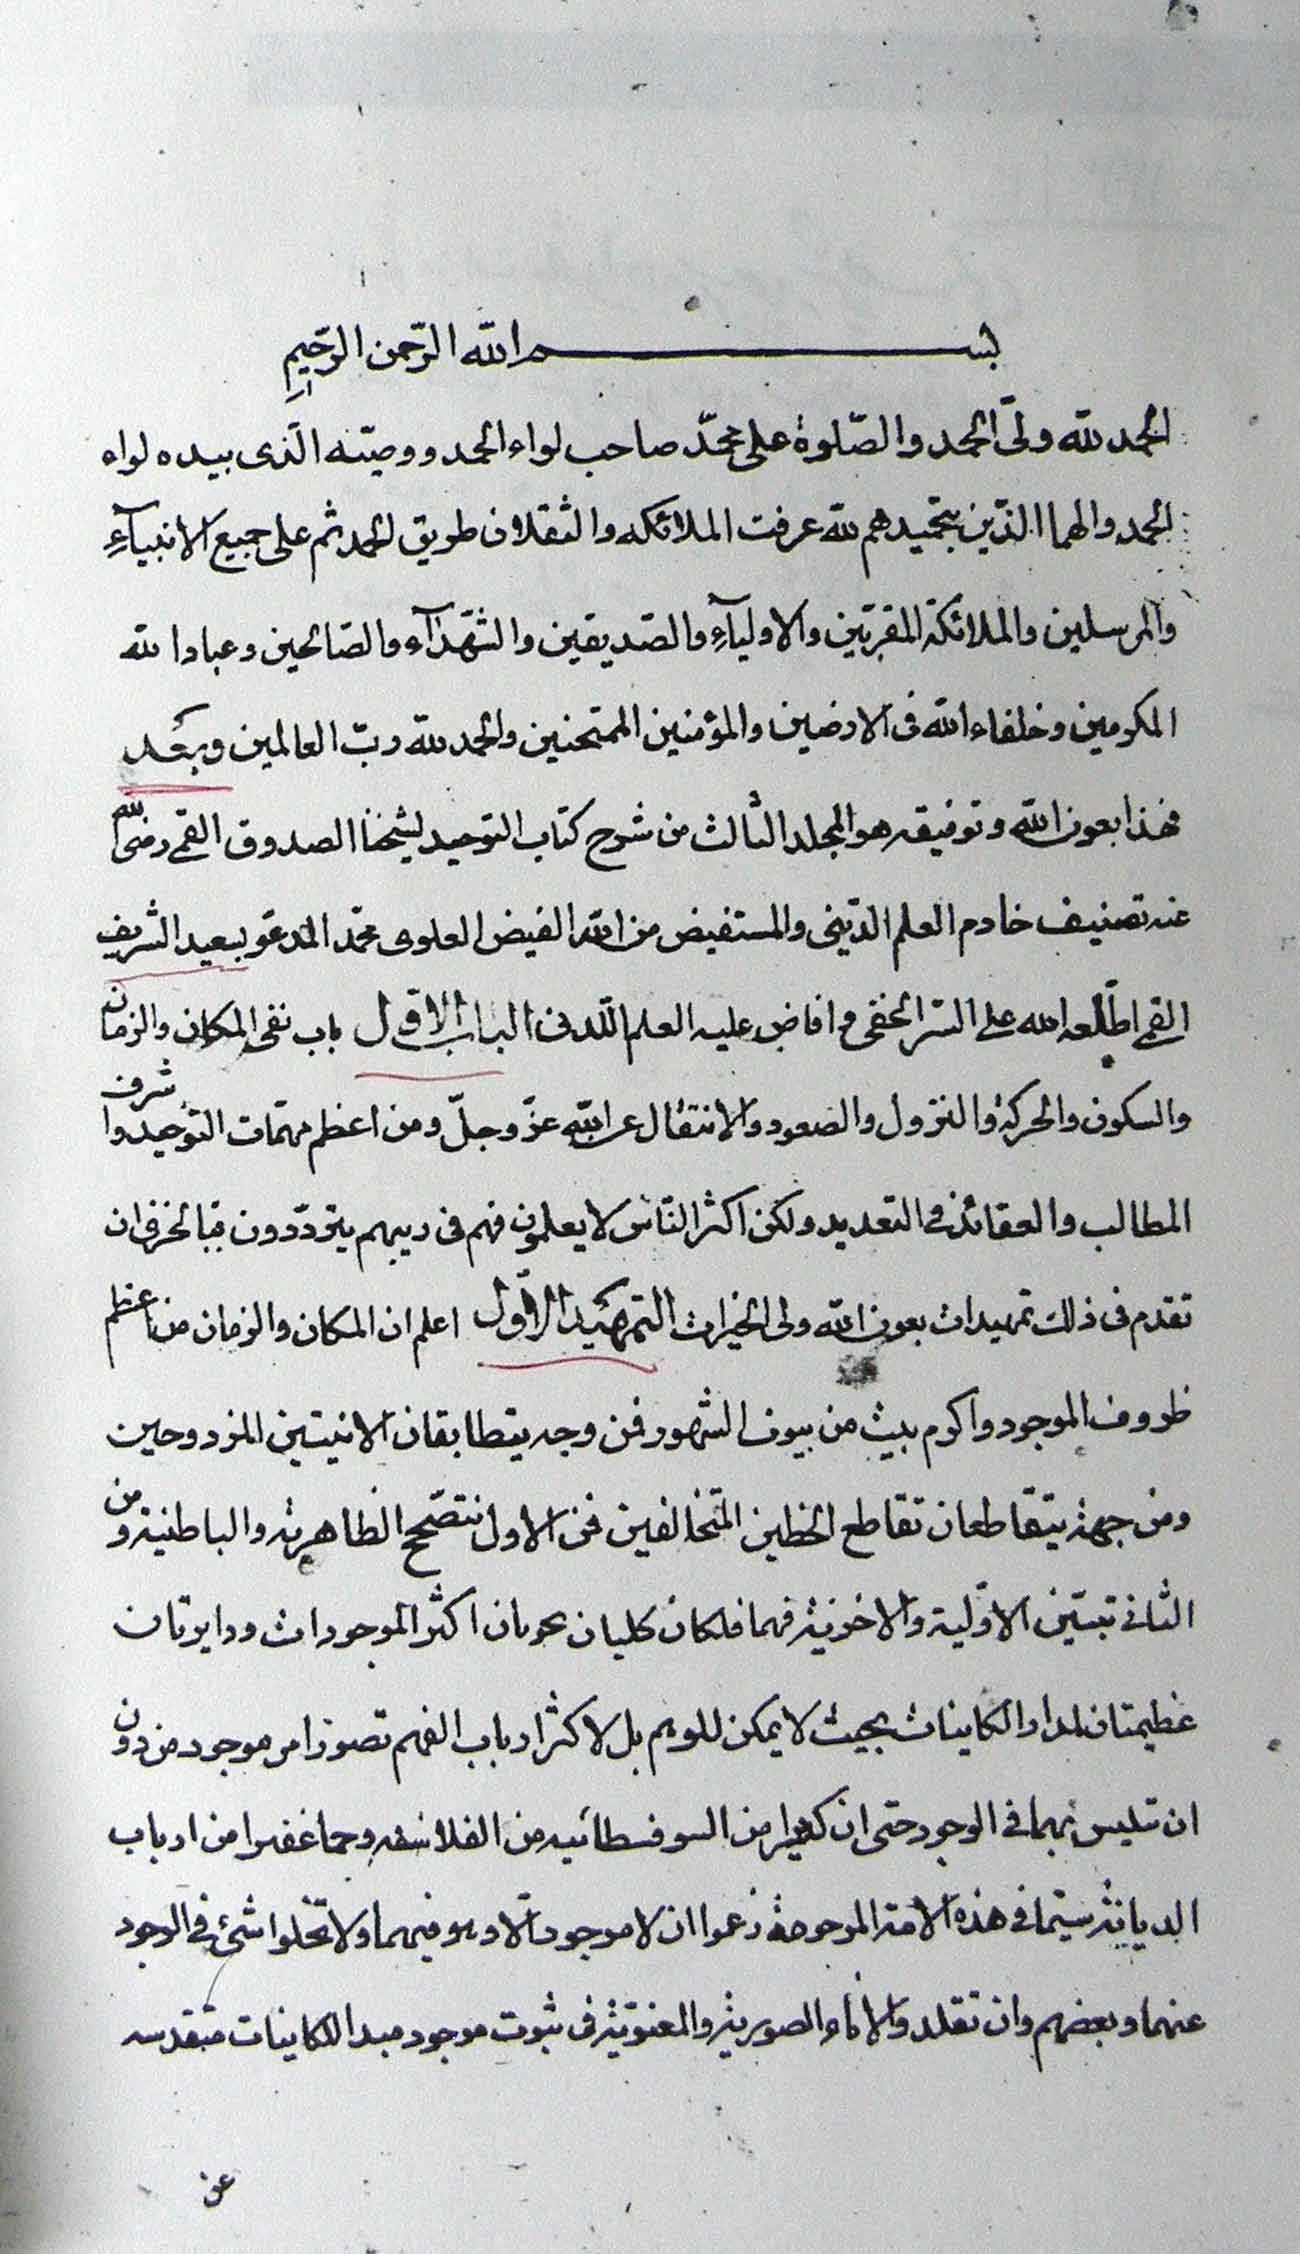 بسم الله الرّحمن الرّحيمِ
الحمد للّه ولىّ الحمد والصّلوة على محمّد صاحب لواء الحمد ووصيّه الّذى بيده لواء
الحمد والهما الّذين بتحميدهم للّه عرفت الملائكه والثقلان طريق الحمد ثم على جميع الانبيآءِ
والمرسلين والملائكة المقربّين والاوليآءِ والصّديقين والشّهدآء والصّالحين وعباد اللّه
المكرمين وخلفاء اللّه فى الارضين والمؤمنين الممتحنين والحمد للّه ربّ العالمين وبعد
فهذا بعون اللّه وتوفيقه هو المجلد الثالث من شرح كتاب التوحيد لشيخنا الصدوق القمى رضى اللّه
عنه تصنيف خادم العلم الدّينى والمستفيض من اللّه الفيض العلوى محمّد المدعو بسعيد الشريف
القمى اطّلعه اللّه على السّر الخفى وافاض عليه العلم اللّدنى الباب الاوّل باب نفى المكان والزمان
والسكون والحركة والنزول والصعود والانتقال عن اللّه عزّ وجلّ ومن اعظم مهمّات التوحيد واشرف
المطالب والعقائد فى التعديد ولكن اكثر النّاس لا يعلمون فهم فى ريبهم يتردّدون فبالحرى ان
تقدم فى ذلك تمهيدات بعون اللّه ولى الخيرات التمهيد الاوّل اعلم ان المكان والزمان من اعظم
ظروف الموجود واكرم بيت من بيوت الشهود فمن وجه يتطابقان الاثنيتين المزدوجين
ومن جهة يتقاطعان تقاطع الخطين المتخالفين فمن الاول تتصحّح الظاهرية والباطنية ومن
الثانى تبتّين الاوّلية والاخرية فهما فلكان كليان يحويان اكثر الموجودات ودايرتان
عظيمتان لمدار الكاينات بحيث لا يمكن للوهم بل لاكثر ارباب الفهم تصور امر موجود من دون
ان تلبس بهما فى الوجود حتى ان كثيرا من السوفسطائيه من الفلاسفه وجما غفيرا من ارباب
الديانة سيّما فى هذه الامة المرحومة زعموا ان لا موجود الّا وهو فيهما ولا تخلوا شئ فى الوجود
عنهما وبعضهم وان تقلد والآباء الصورية والمعنويّة فى ثبوت موجود مبدا للكاينات متقدسه
عن